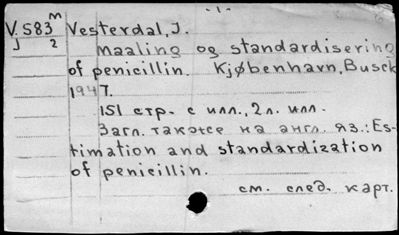 -1-
V583 M Vesterdal, J.
J 2 Maaling og standardisering
of penicillin. Kjøbenhavn, Busck
1947.
151 стр. с илл., 2 л. илл.
Загл. также на англ. яз.: Es-
timation and standardization
of penicillin.
см. след. карт.